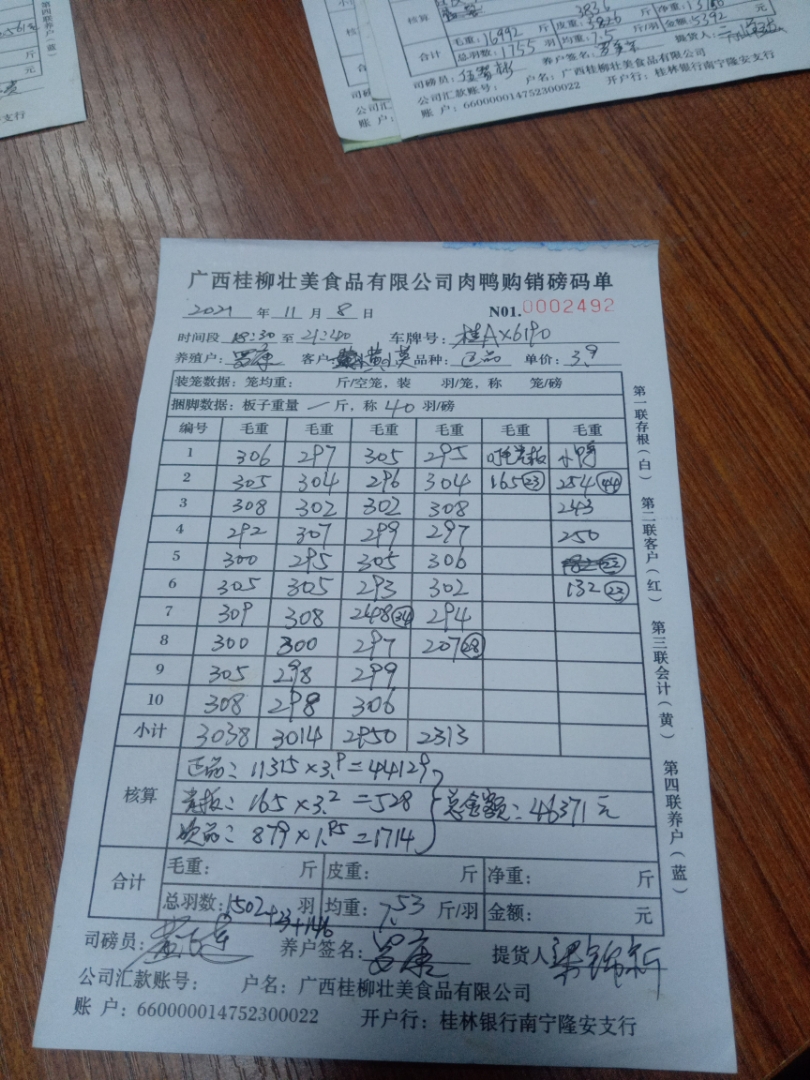 核算
毛重：16992 斤 皮重：3826 斤 净重：斤
合计 总羽数：1755 羽 均重：7.5 斤/羽 金额：5392 元
司磅员： 养户签名： 提货人：
公司汇款账号： 户名：广西桂柳壮美食品有限公司
账 户：660000014752300022 开户行：桂林银行南宁隆安支行
第四联养户（蓝）
斤
元
支行
广西桂柳壮美食品有限公司肉鸭购销磅码单
2021 年 11 月 8 日 N01.0002492
时间段 18:30 至 21:40 车牌号：桂AX6190
养殖户：罗康 客户： 黄小英 品种：正品 单价：3.9
装笼数据：笼均重： 斤/空笼，装 羽/笼，称 笼/磅
捆脚数据：板子重量 一 斤，称 40 羽/磅
编号 毛重 毛重 毛重 毛重 毛重 毛重
1 306 297 305 295 小鸭
2 305 304 296 304 165(23) 254(44)
3 308 302 302 308 243
4 292 307 299 297 250
5 300 295 305 306
6 305 305 293 302 132(22)
7 309 308 248(34) 294
8 300 300 297 207(28)
9 305 298 299
10 308 298 306
小计 3038 3014 2950 2313
核算
正品：11315×3.9=44129
光板：165×3.2=528
次品：879×1.95=1714
总金额：46371元
合计
毛重： 斤 皮重： 斤 净重： 斤
总羽数：1502+23+146 羽 均重：7.53 斤/羽 金额： 元
司磅员： 养户签名：罗康 提货人 梁锦新
公司汇款账号： 户名：广西桂柳壮美食品有限公司
账 户：660000014752300022 开户行：桂林银行南宁隆安支行
第一联存根（白） 第二联客户（红） 第三联会计（黄） 第四联养户（蓝）